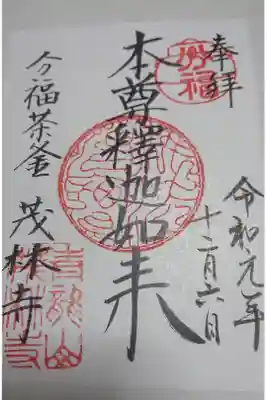 奉拝
令和元年
十二月六日
本尊釋迦如来
分福茶釜
茂林寺
分福
青龍山
茂林寺